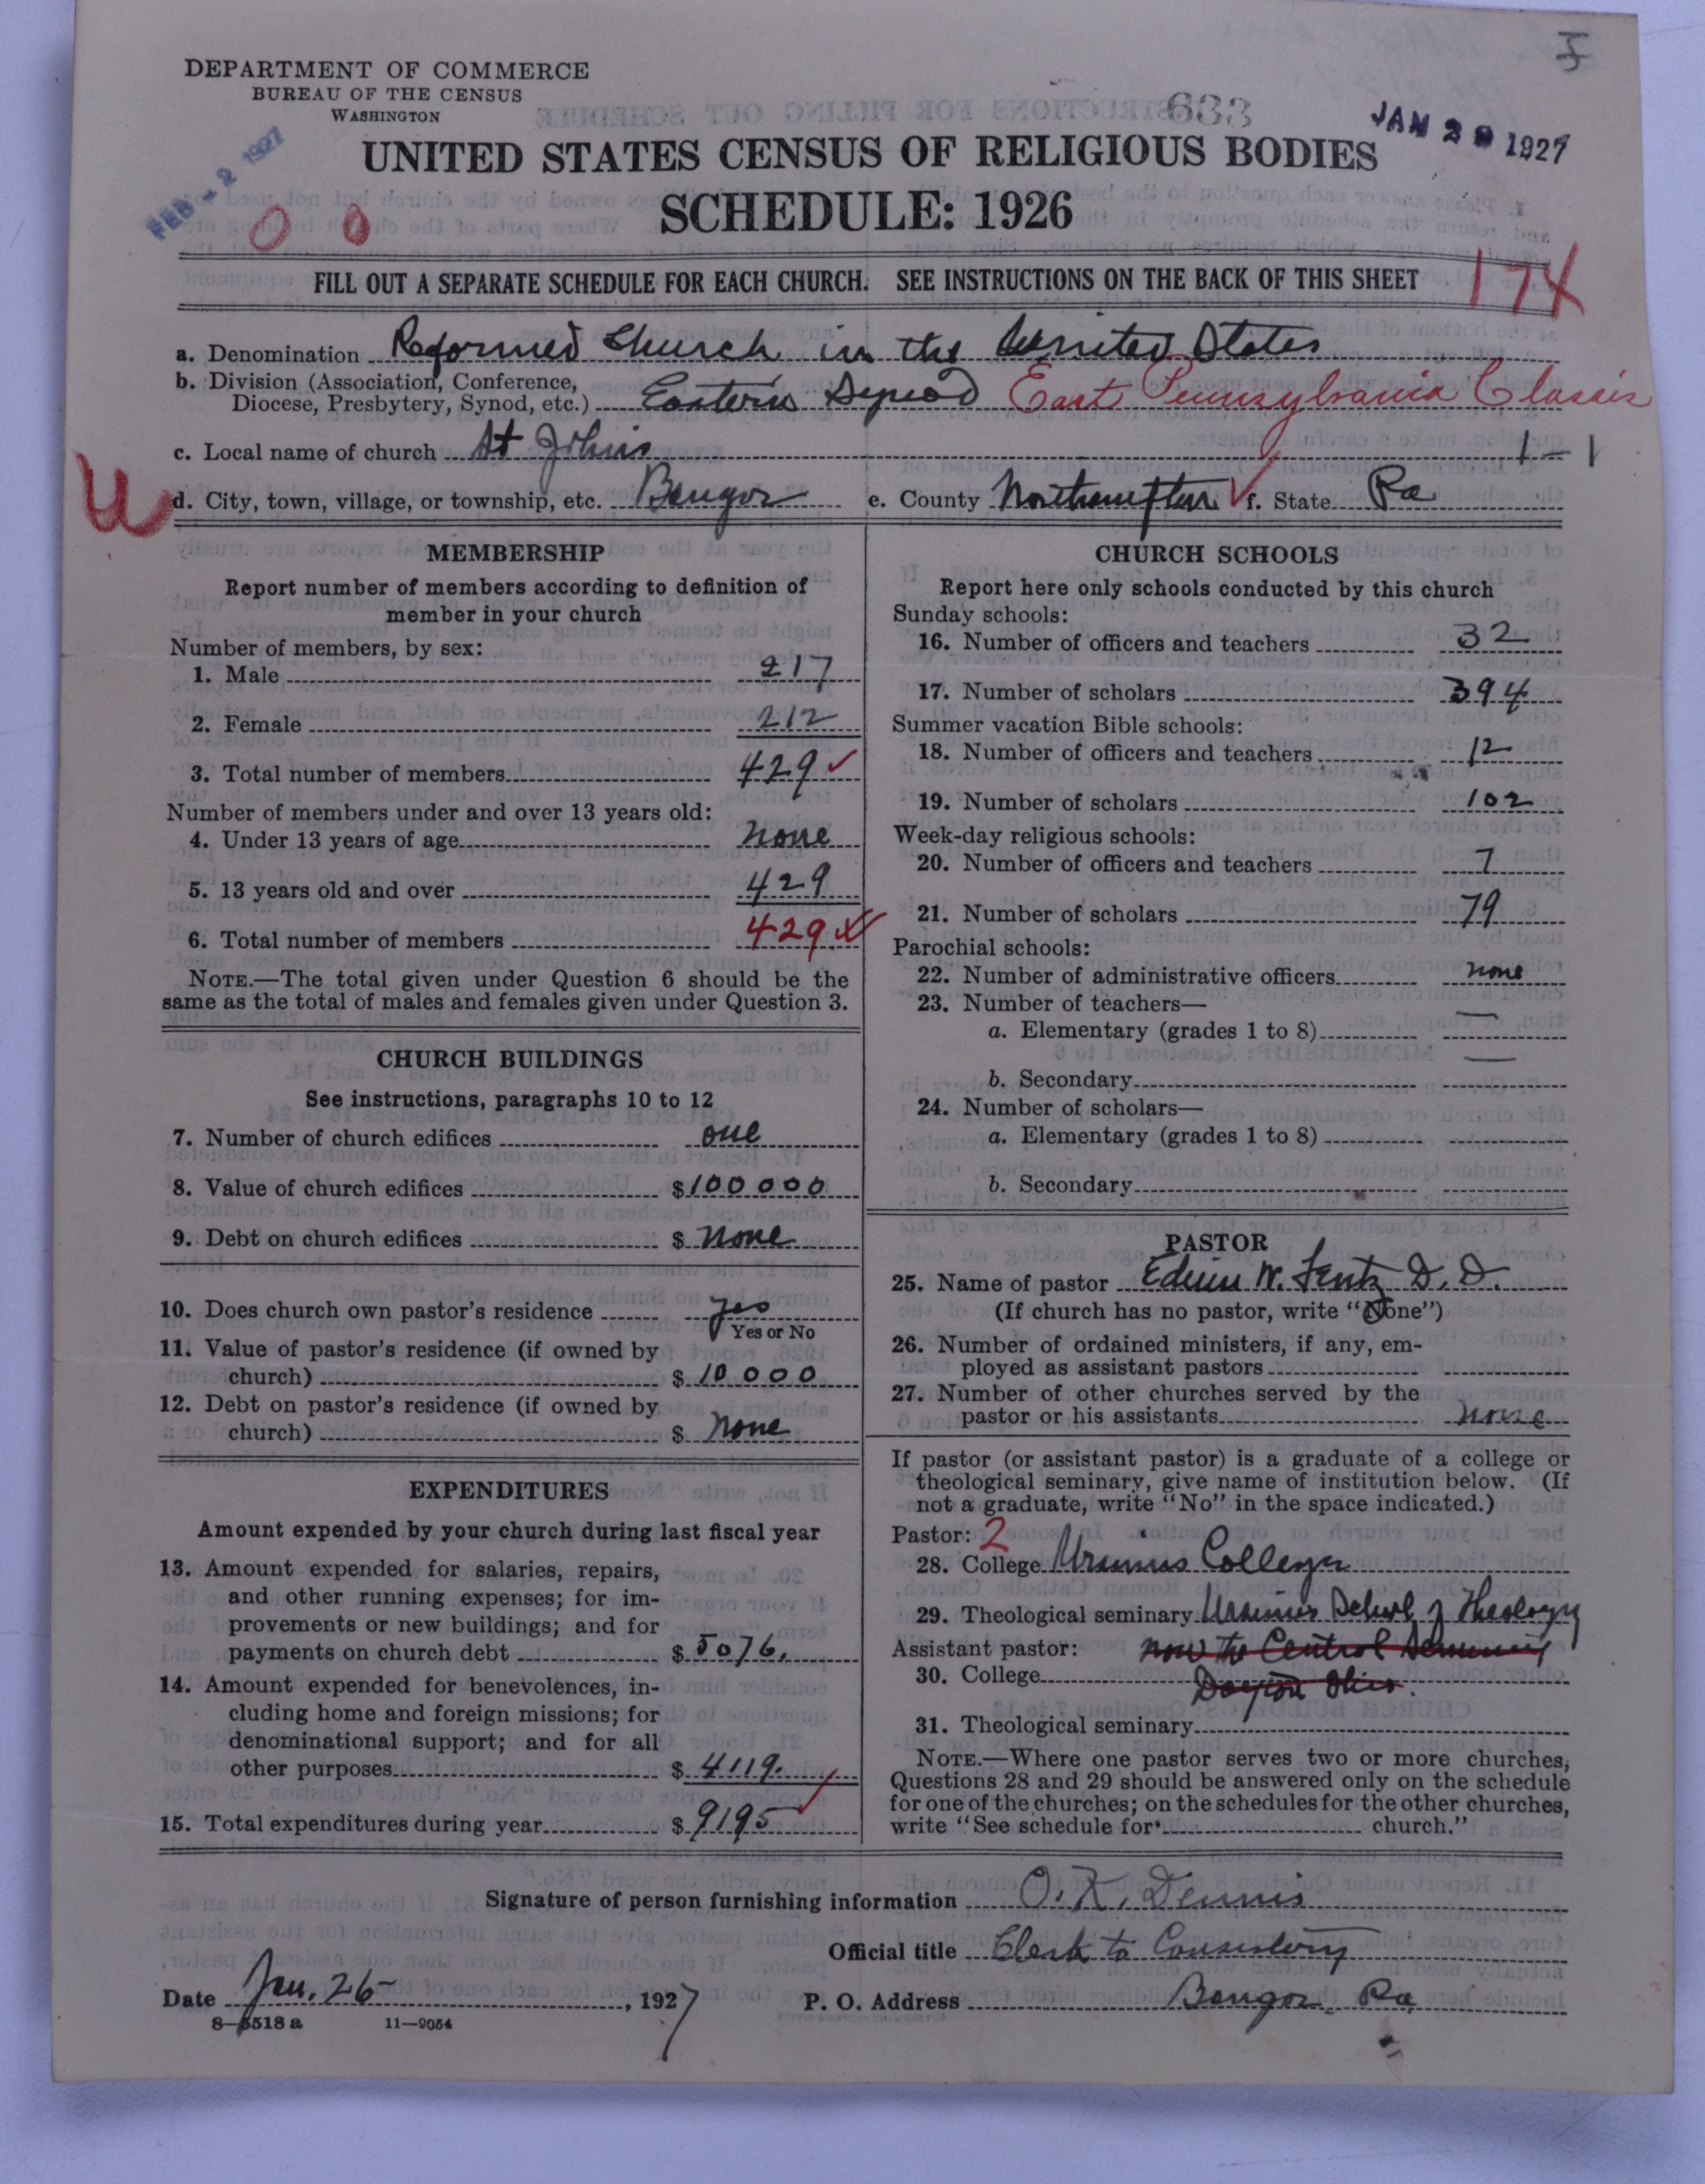 DEPARTMENT OF COMMERCE
BUREAU OF THE CENSUS
WASHINGTON
633
JAN 29 1927
FEB -2 1927
UNITED STATES CENSUS OF RELIGIOUS BODIES
SCHEDULE: 1926
0 0
FILL OUT A SEPARATE SCHEDULE FOR EACH CHURCH. SEE INSTRUCTIONS ON THE BACK OF THIS SHEET
174
a. Denomination Reformed Church in the United States
b. Division (Association, Conference, Diocese, Presbytery, Synod, etc.) Eastern Synod East Pennsylvania Classis
c. Local name of church St Johns 1-1
U
d. City, town, village, or township, etc. Bangor e. County Northampton f. State Pa
MEMBERSHIP
Report number of members according to definition of
member in your church
Number of members, by sex:
1. Male 217
2. Female 212
3. Total number of members 429
Number of members under and over 13 years old:
4. Under 13 years of age none
5. 13 years old and over 429
6. Total number of members 429
NOTE.—The total given under Question 6 should be the
same as the total of males and females given under Question 3.
CHURCH BUILDINGS
See instructions, paragraphs 10 to 12
7. Number of church edifices one
8. Value of church edifices $100000
9. Debt on church edifices $ none
10. Does church own pastor's residence yes
Yes or No
11. Value of pastor's residence (if owned by
church) $ 10000
12. Debt on pastor's residence (if owned by
church) $ none
EXPENDITURES
Amount expended by your church during last fiscal year
13. Amount expended for salaries, repairs,
and other running expenses; for im-
provements or new buildings; and for
payments on church debt $ 5076.
14. Amount expended for benevolences, in-
cluding home and foreign missions; for
denominational support; and for all
other purposes $ 4119.
15. Total expenditures during year $ 9195
CHURCH SCHOOLS
Report here only schools conducted by this church
Sunday schools:
16. Number of officers and teachers 32
17. Number of scholars 394
Summer vacation Bible schools:
18. Number of officers and teachers 12
19. Number of scholars 102
Week-day religious schools:
20. Number of officers and teachers 7
21. Number of scholars 79
Parochial schools:
22. Number of administrative officers none
23. Number of teachers—
a. Elementary (grades 1 to 8) —
b. Secondary —
24. Number of scholars—
a. Elementary (grades 1 to 8)
b. Secondary
PASTOR
25. Name of pastor Edwin W. Lentz D. D.
(If church has no pastor, write "None")
26. Number of ordained ministers, if any, em-
ployed as assistant pastors
27. Number of other churches served by the
pastor or his assistants none
If pastor (or assistant pastor) is a graduate of a college or
theological seminary, give name of institution below. (If
not a graduate, write "No" in the space indicated.)
Pastor: 2
28. College Ursinus College
29. Theological seminary Ursinus School of Theology
Assistant pastor: now the Central Seminary
30. College Dayton Ohio.
31. Theological seminary
NOTE.—Where one pastor serves two or more churches,
Questions 28 and 29 should be answered only on the schedule
for one of the churches; on the schedules for the other churches,
write "See schedule for church."
Signature of person furnishing information O. K. Dennis
Official title Clerk to Consistory
Date Jan. 26-, 1927 P. O. Address Bangor Pa
8—5518 a 11—9054